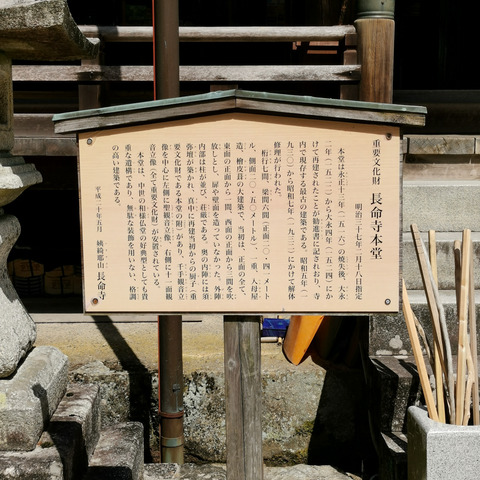 重要文化財 長命寺本堂
明治三十七年二月十八日指定
本堂は永正十三年(一五一六)の焼失後、大永
二年(一五二二)から大永四年(一五二四)にか
けて再建されたことが勧進書に記されており、寺
内で現存する最古の建築である。昭和五年(一
九三〇)から昭和七年(一九三二)にかけて解体
修理が行われた。
桁行七間、梁間六間(正面二〇・四一メート
ル、側面一六・五〇メートル)、一重、入母屋
造、檜皮葺の大建築で、当初は、正面の全て、
東面の正面から一間、西面の正面から三間を吹
放しとし、扉や壁面を造っていなかった。外陣
内部は柱が並び、荘厳である。奥の内陣には須
弥壇が築かれ、真中に再建当初からの厨子(重
要文化財である本堂の附)があり、千手観音立
像を中心に左側に聖観音立像、右側に十一面観
音立像(全て重要文化財)が安置されている。
本堂は、中世の和様仏堂の好典型としても貴
重な遺構であり、無駄な装飾を用いない、格調
の高い建築である。
平成二十年五月 姨綺耶山 長命寺